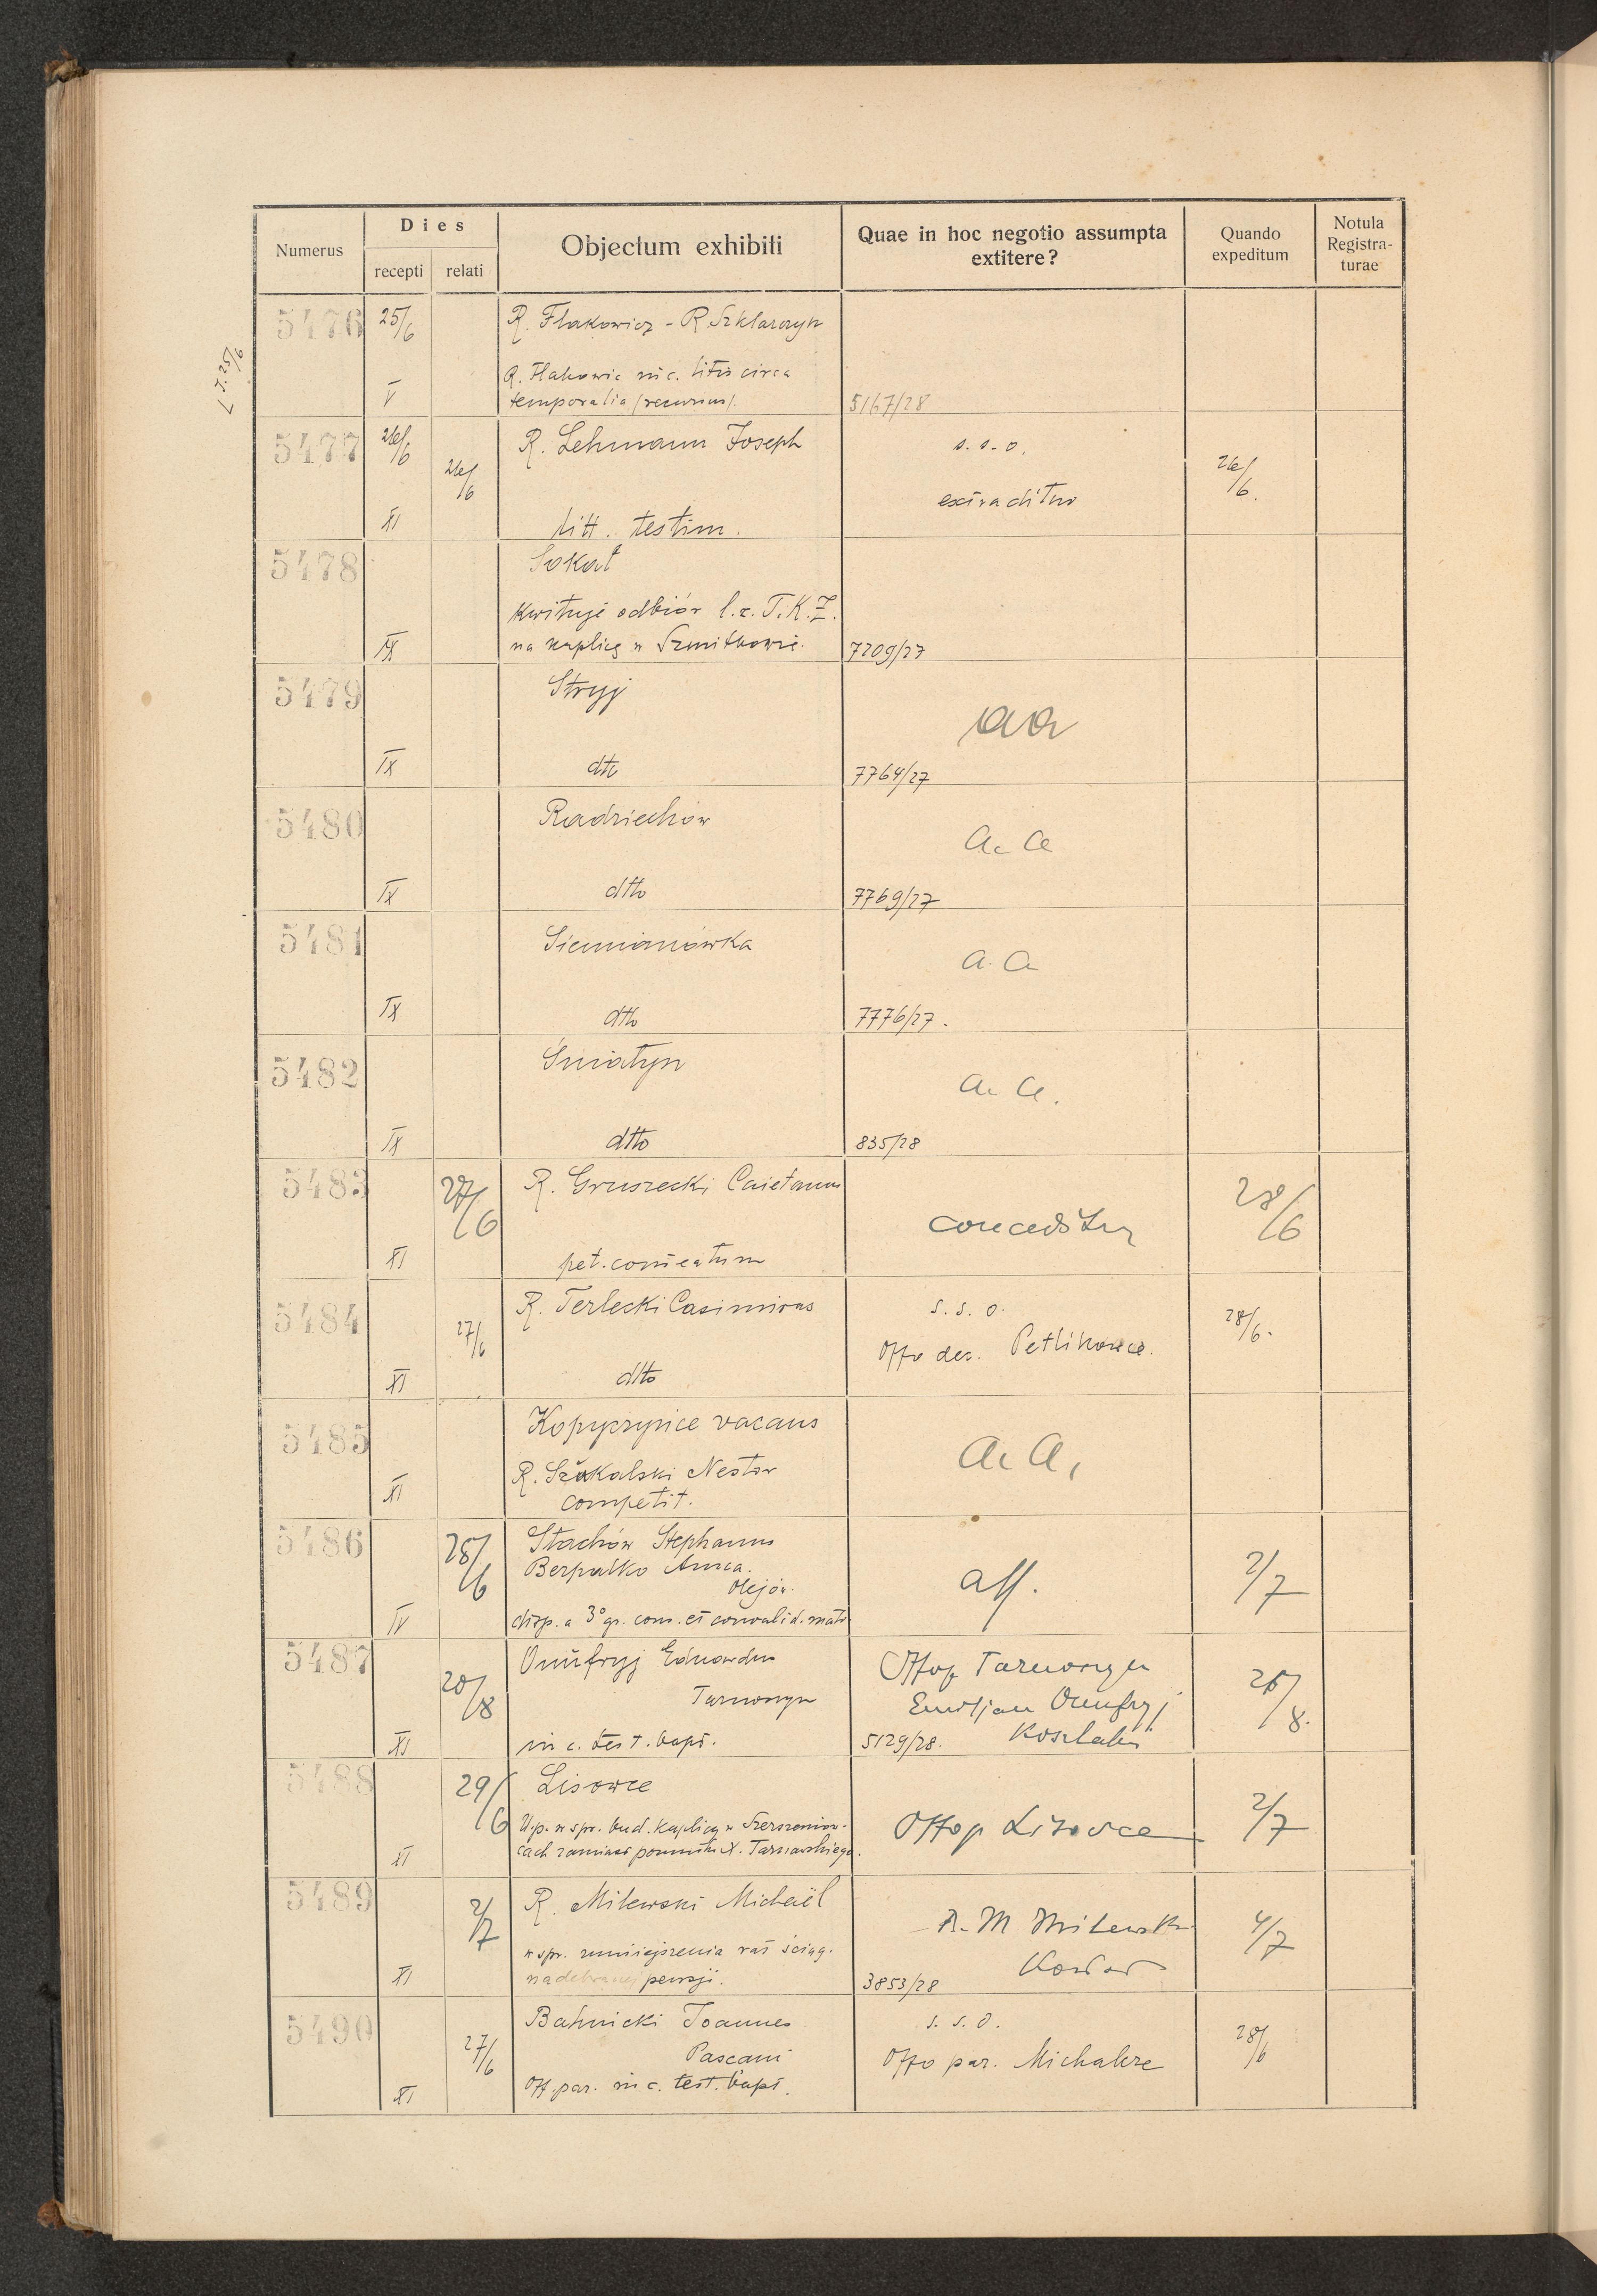 Numerus
Dies
recepti
relati
Objectum exhibiti
Quae in hoc negotio assumpta extitere?
Quando expeditum
Notula Registra-turae
5476 25/6 R. Flakowicz - R Szklarczyk
R. Flakowic in c. litis circa
V temporalia (recursus). 5167/28
5477 26/6 26/6 R. Lehmann Joseph s. s. o. 26/6.
extraditur
XI litt. testim.
5478 Sokal
Kwituje odbiór l.z. T.K.Z.
IX na kaplicę w Szmitkowie. 7209/27
5479 Stryj
aa
IX dto 7764/27
5480 Radziechów
a. a
IX dtto 7769/27
5481 Siemianówka
a. a
IX dtto 7776/27.
5482 Śniatyn
a. a.
IX dtto 835/28
5483 27/6 R. Gruszecki Caietanus 28/6
conceditur
XI pet. comeatum
5484 27/6 R. Terlecki Casimirus s. s. o. 28/6.
Offo dec. Petlikowce.
XI dtto
5485 Kopyczyńce vacans
a. a.
XI R. Szukalski Nestor
competit.
5486 28/6 Stachów Stephanus
Berpalko Anna. aff. 2/7
Olejów.
IV disp. a 3° gr. cons. et convalid. matr
5487 20/8 Onufryj Eduardus Offop Tarnoruda
Emiljan Onufryj
XI in c. test. bapt. 5129/28. Koszlaki
5488 29/6 Lisowce
Up. w spr. bud. kaplicy w Szerszeniow- Offop Lisowce 2/7
XI cach zamiast pomnika X. Tarnawskiego.
5489 2/7 R. Milewski Michaël
R. M Milewski 4/7
w spr. zmniejszenia rat ściąg.
XI nadebranej pensji. 3853/28
5490 27/6 Bahnicki Joannes s. s. o. 28/6
Pascani Offo par. Michalcze
XI Off par. in c. test. bapt.